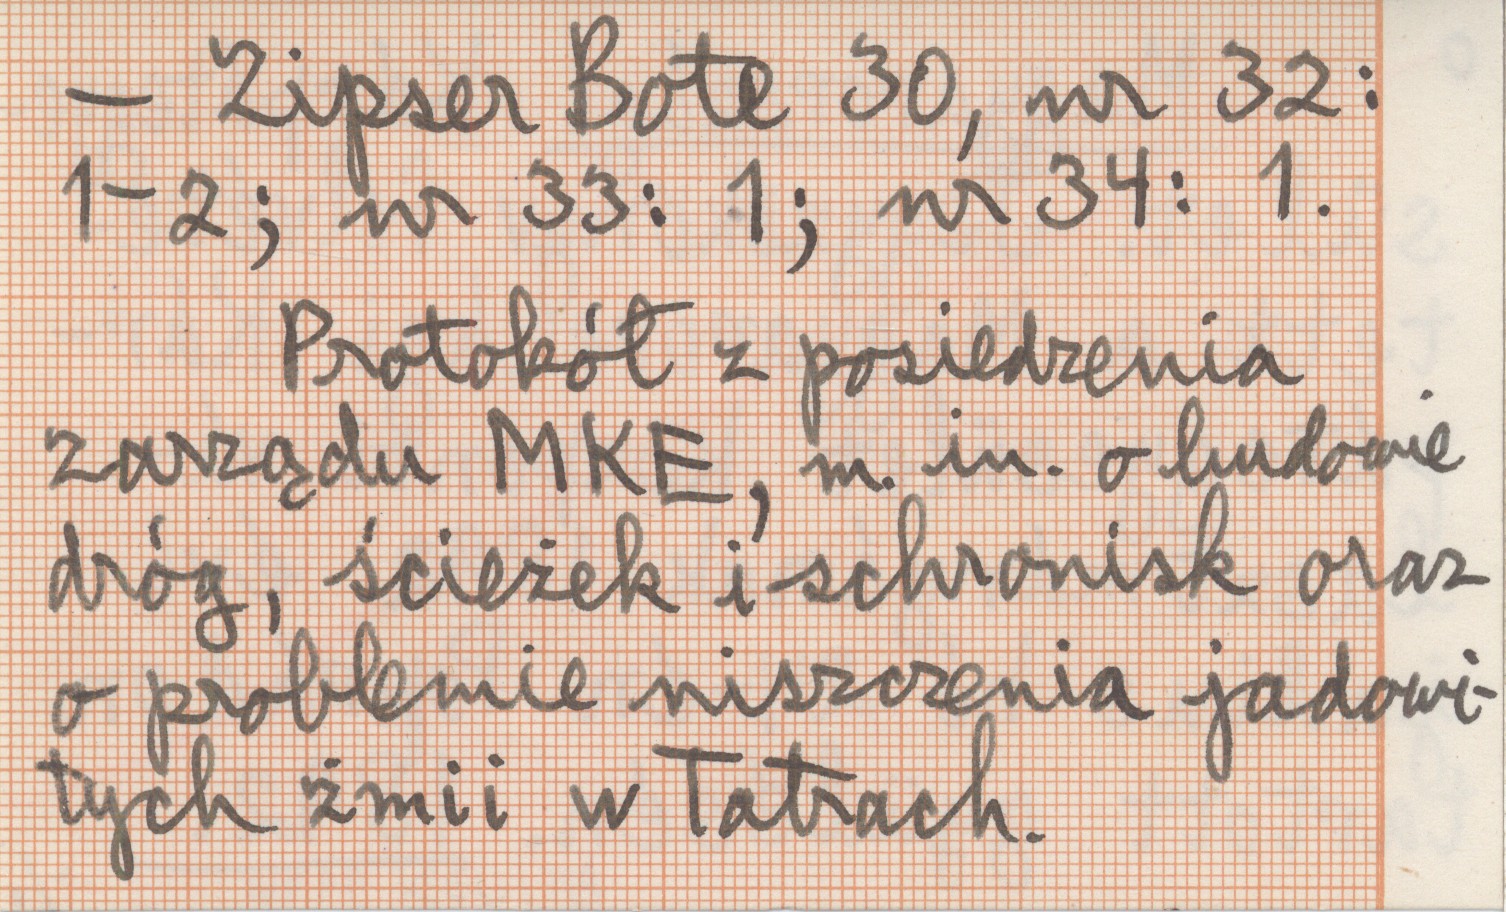 — Zipser Bote 30, nr 32:
1-2; nr 33: 1; nr 34: 1.
Protokół z posiedzenia
zarządu MKE, m. in. o budowie
dróg, ścieżek i schronisk oraz
o problemie niszczenia jadowi-
tych żmii w Tatrach.